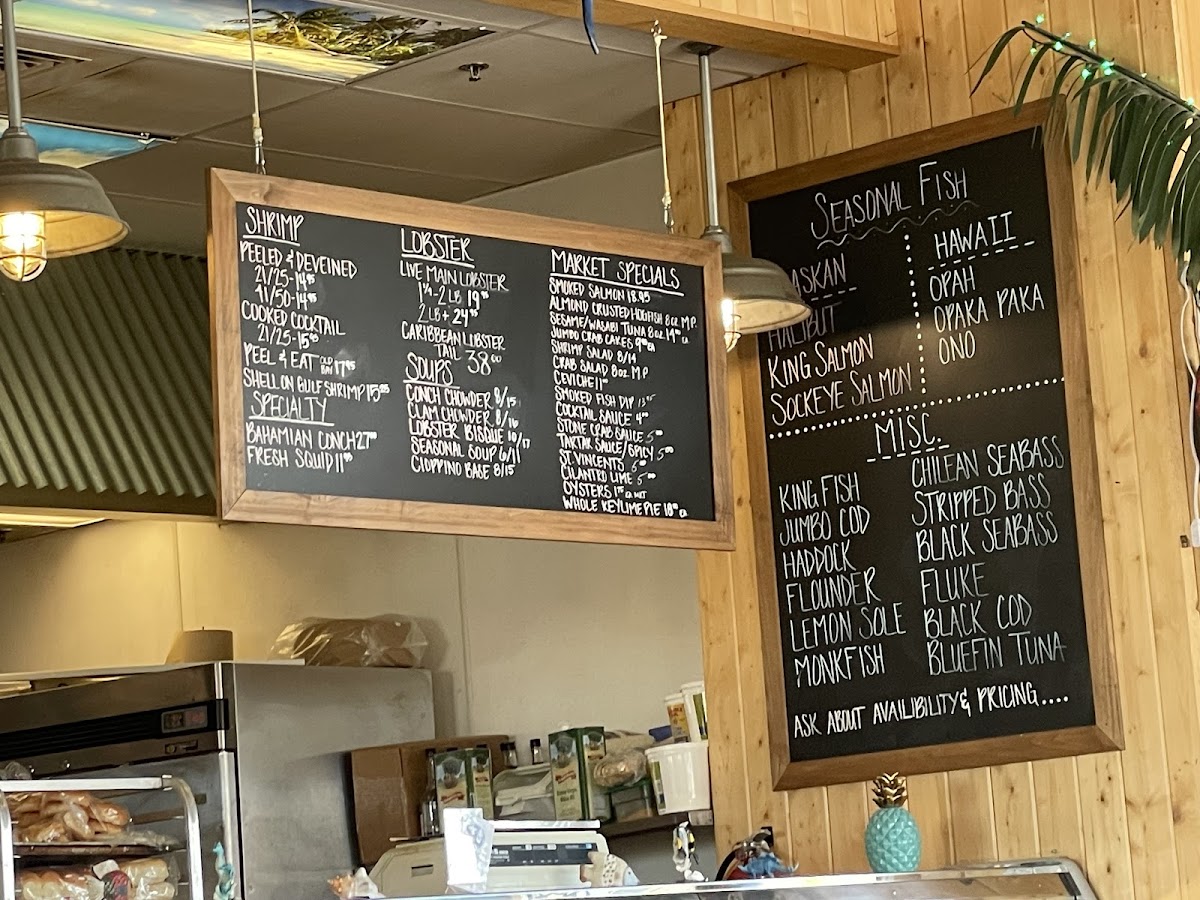 SHRIMP
PEELED & DEVEINED
21/25-14.95
41/50-14.95
COOKED COCKTAIL
21/25-15.95
PEEL & EAT OLD BAY 17.95
SHELL ON GULF SHRIMP 15.95
SPECIALTY
BAHAMIAN CONCH 27.00
FRESH SQUID 11.95
LOBSTER
LIVE MAIN LOBSTER
1 1/4-2 LB 19.95
2 LB + 24.95
CARIBBEAN LOBSTER
TAIL 38.00
SOUPS
CONCH CHOWDER 8/15
CLAM CHOWDER 8/16
LOBSTER BISQUE 10/17
SEASONAL SOUP 6/11
CIOPPINO BASE 8/15
MARKET SPECIALS
SMOKED SALMON 18.95
ALMOND CRUSTED HOGFISH 8 OZ M.P.
SESAME/WASABI TUNA 8 OZ 14.95 EA
JUMBO CRAB CAKES EA
SHRIMP SALAD 8/14
CRAB SALAD 8 OZ. M.P
CEVICHE 11.00
SMOKED FISH DIP
COCKTAIL SAUCE 4.00
STONE CRAB SAUCE 5.00
TARTAR SAUCE/SPICY 5.00
ST. VINCENTS 5.00
CILANTRO LIME 5.00
OYSTERS EA
WHOLE KEYLIME PIE EA
SEASONAL FISH
ASKAN
HALIBUT
KING SALMON
SOCKEYE SALMON
HAWAII
OPAH
OPAKA PAKA
ONO
MISC.
KING FISH
JUMBO COD
HADDOCK
FLOUNDER
LEMON SOLE
MONKFISH
CHILEAN SEABASS
STRIPPED BASS
BLACK SEABASS
FLUKE
BLACK COD
BLUEFIN TUNA
ASK ABOUT AVAILIBILITY & PRICING....